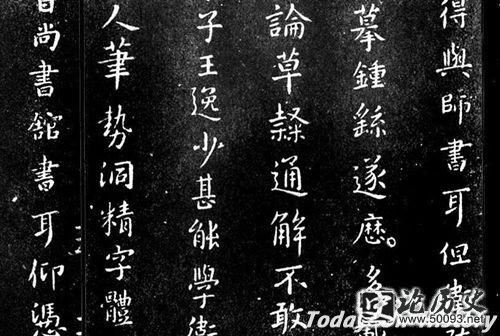 得與師書耳但衛
摹鍾繇遂歷多
論草隸通解不敢
子王逸少甚能學衛
人筆勢洞精字體
晉尚書舘書耳仰憑
历史
www.50093.net
Today